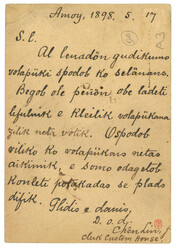 Amoy, 1898. 5. 17
S. l.
Al lenadön gudikumo
volapüki spodob ko setänans.
Begob ole penön obe ladeti
lefulnik e kleilik volapükana
zilik netä votik. Ospodob
viliko ko volapükans netas
difik, e somo odagolob
potakadas se plads
difik. Plidis e danis,
D. o. d.
Chen Lin,
Clerk Custom House